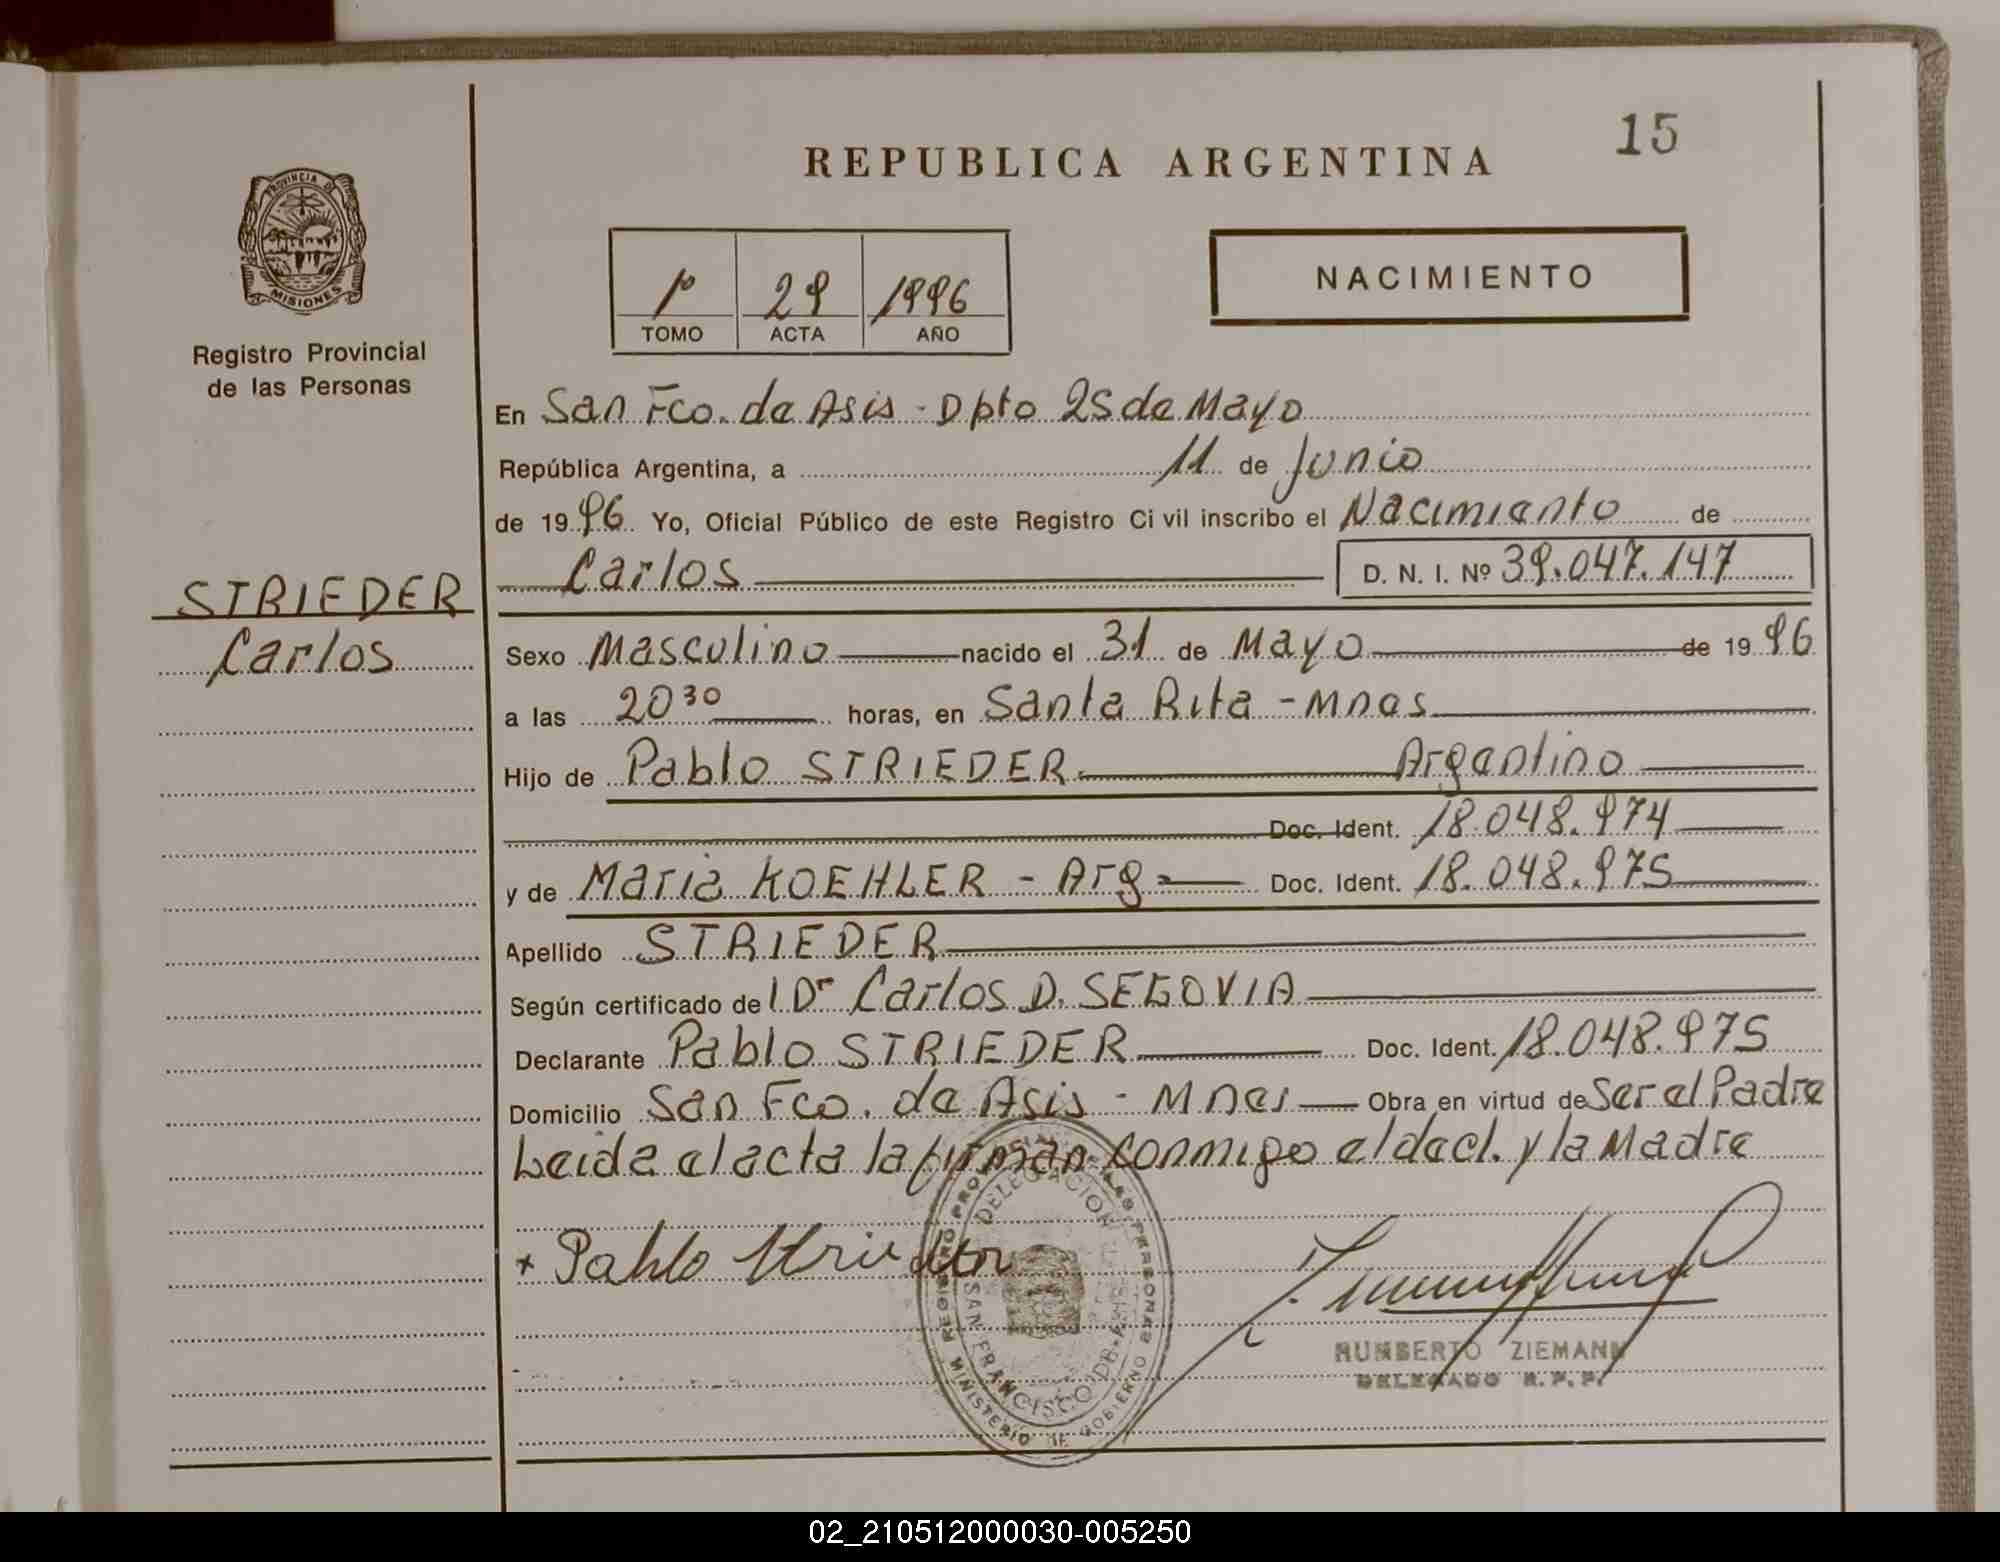 REPUBLICA ARGENTINA
15
PROVINCIA DE
MISIONES
Registro Provincial
de las Personas
1º 29 1996
TOMO ACTA AÑO
NACIMIENTO
En San Fco. de Asis - Dpto 25 de Mayo
República Argentina, a 11 de Junio
de 1996 Yo, Oficial Público de este Registro Civil inscribo el Nacimiento de
Carlos D. N. I. Nº 39.047.147
STRIEDER
Carlos
Sexo Masculino nacido el 31 de Mayo de 1996
a las 20 30 horas, en Santa Rita - Mnes
Hijo de Pablo STRIEDER Argentino
Doc. Ident. 18.048.974
y de Maria KOEHLER - Arg Doc. Ident. 18.048.975
Apellido STRIEDER
Según certificado del Dr Carlos D. SEGOVIA
Declarante Pablo STRIEDER Doc. Ident. 18.048.975
Domicilio San Fco. de Asis - Mnes Obra en virtud de Ser el Padre
Leida el acta la firman conmigo el decl. y la Madre
+ Pablo Strieder
REGISTRO PROVINCIAL DE LAS PERSONAS
DELEGACION
SAN FRANCISCO DE ASIS
MINISTERIO DE GOBIERNO
HUMBERTO ZIEMANN
DELEGADO R. P. P.
02_210512000030-005250